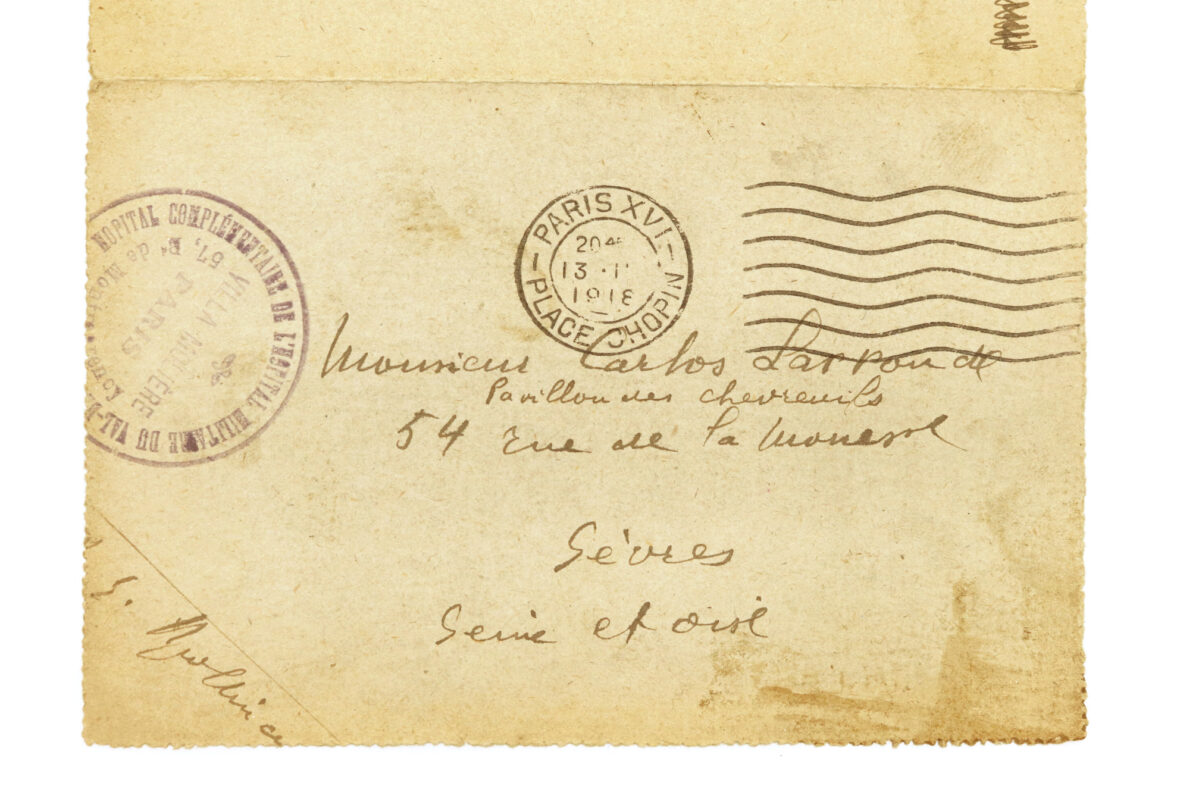 HOPITAL COMPLÉMENTAIRE DE L'HOPITAL MILITAIRE DU VAL-D
67, Bd de
VILLA MOLIÈRE
PARIS
PARIS XVI
13 · II
1918
PLACE CHOPIN
Monsieur Carlos Larronde
Pavillon des chevreuils
54 rue de la Monesse
Sèvres
Seine et Oise